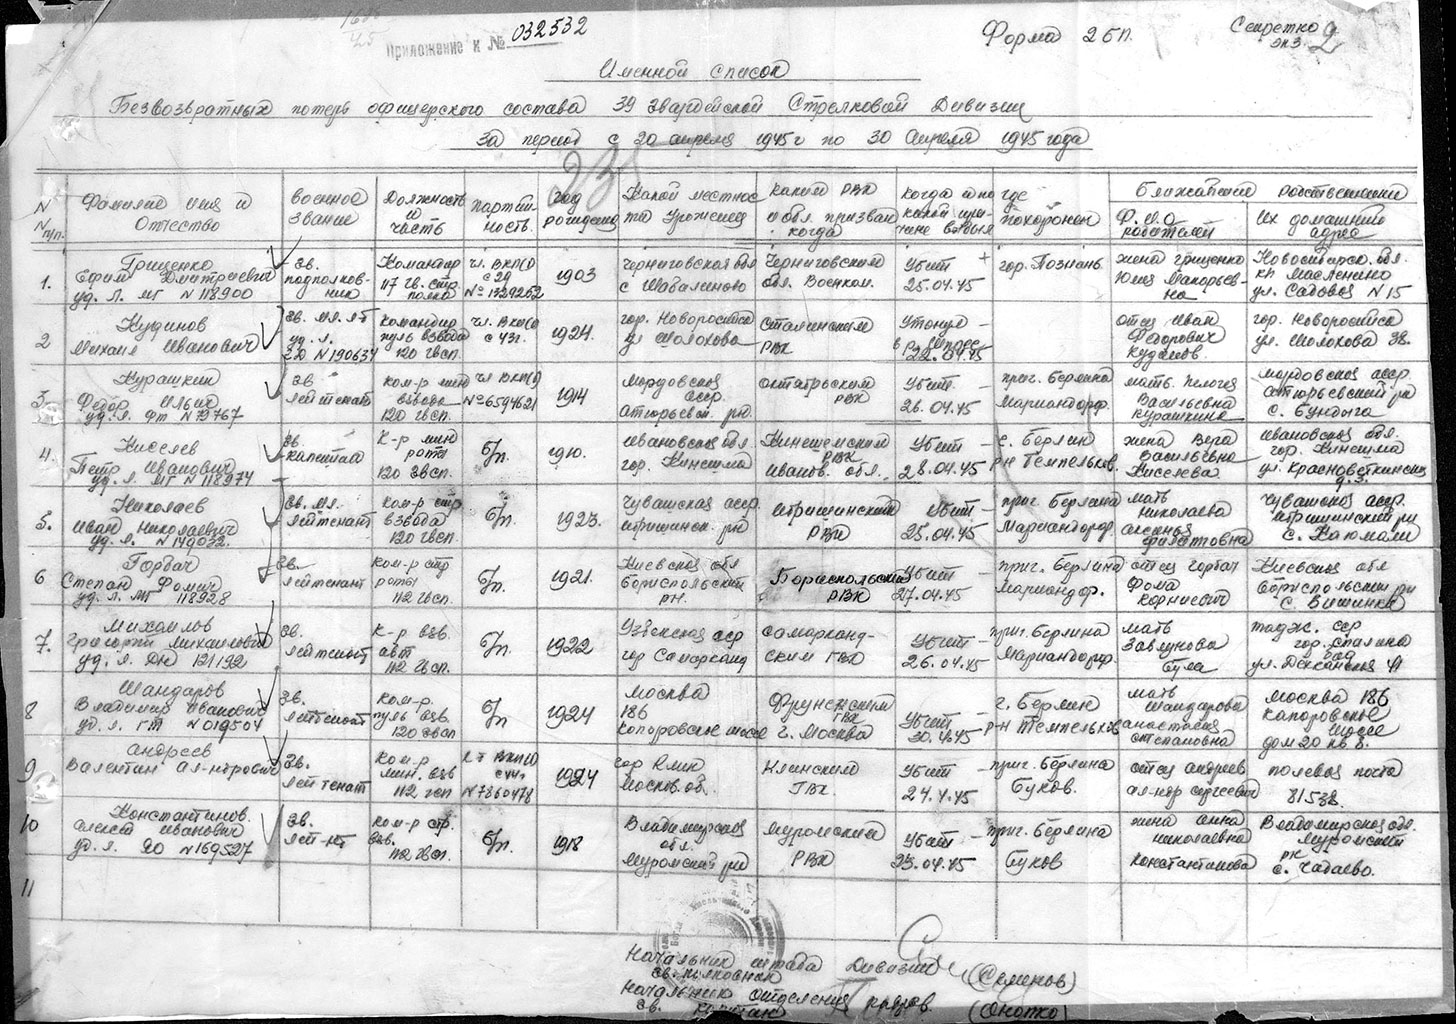 Приложение к № 032532
Форма 2 БП.
Секретно
экз. 2
Именной список
Безвозвратных потерь офицерского состава 39 Гвардейской Стрелковой Дивизии
За период с 20 апреля 1945 г по 30 Апреля 1945 года
N
N п/п.
Фамилия имя и
Отчество
военное
звание
Должность
и
часть
партий-
ность.
год
рождения
Какой местнос
ти Уроженец
каким РВК
и обл. призван
когда
когда и по
какой при-
чине выбыл
где
похоронен
Ближайшие родственники
Ф.И.О
родителей
Их домашний
адрес
1.
Гриценко
Ефим Дмитриевич
уд. Л. МГ N 118900
гв.
подполков-
ник
Командир
117 гв. стр.
полка
чл. ВКП(б)
с 29
1903
Черниговская обл
Черниговским
обл. Военком.
Убит
25.04.45
гор. Познань
жена Гриценко
Юлия Макарьев-
на
Новосибирс. обл.
ул. Садовая N 15
2
Кудинов
Михаил Иванович
гв. мл. л-т
уд. л.
N 190634
командир
пуль взвода
120 гвсп.
чл. ВКП(б)
с 43г.
1924.
гор. Новоросийск
ул Шолохова
Сталинским
РВК
Утонул
22.04.45
отец Иван
Федорович
Кудинов
гор. Новоросийск
ул. Шолохова 38.
3.
Курашкин
Федор Ильич
уд. л. ФТ N 79767
гв
лейтенант
ком-р мин
взвода
120 гвсп.
чл ВКП(б)
N 6594621
1914
Мордовская
асср.
Атюрьевск. рн.
октябрьским
РВК
Убит
26.04.45
приг. Берлина
Мариандорф.
мать Пелогея
Васильевна
Курашкина
мордовская асср
атюрьевский рн
с. Бундыга
4.
Киселев
Петр Иванович
уд. л. МГ N 118974
гв.
капитан
К-р мин
роты
120 гвсп.
б/п.
1910.
Ивановская обл.
гор. Кинешма
Кинешемским
РВК
Иванов. обл.
Убит
28.04.45
г. Берлин
р-н Темпельхов.
жена Вера
Васильевна
Киселева
Ивановская обл.
гор. Кинешма
5.
Николаев
Иван Николаевич
гв. мл.
лейтенант
ком-р стр
взвода
120 гвсп.
б/п.
1923.
Чувашская асср.
Убит
25.04.45
приг. Берлина
Мариандорф.
мать
Николаева
Филатовна
Чувашская асср.
6
Горбач
Степан Фомич
уд. л. МГ 118928
гв.
лейтенант
ком-р стр
роты
112 гвсп.
б/п.
1921.
Киевская обл
бориспольский
рн.
Бориспольским
РВК
Убит
27.04.45
приг. Берлина
Мариандорф.
отец Горбач
Фома
Корниевич
Киевская обл
бориспольский рн
с. Вишинки
7.
Михайлов
Григорий Михайлович
уд. л. ДН 121192
гв.
лейтенант
К-р взв.
авт
112 гвсп.
б/п.
1922
Узбекская сср
гор Самарканд
Самарканд-
ским ГВК
Убит
26.04.45
приг. Берлина
Мариандорф.
мать
тадж. сср
гор. Сталина
бад
8
Шандаров
Владимир Иванович
уд. л. ГТ N 019504
гв.
лейтенант
ком-р.
пуль взв.
120 гвсп
б/п
1924
Москва
186
Капоровское шоссе
Фрунзенским
РВК
г. Москва
Убит
30.4.45
г. Берлин
р-н Темпельхов
мать
Шандарова
Анастасия
Степановна
Москва 186
Капоровское
шоссе
дом 20 кв 8.
9
Андреев
Валентин Ал-ндрович
гв.
лейтенант
ком-р
мин. взв
112 гвсп
ВКП(б)
N 7860478
1924
гор Клин
москов. об.
Клинским
ГВК.
Убит
24.4.45
приг. Берлина
Буков.
отец Андреев
Ал-ндр Сергеевич
полевая почта
81538.
10
Константинов.
Алексей Иванович
уд. л. ДО N 169527
гв.
лейт-нт
ком-р стр.
взв.
112 гвсп.
б/п.
1918
Владимирская
обл.
Муромский рн
Муромский
РВК
Убит
приг. Берлина
Буков
жена Анна
Николаевна
Константинова
Владимирская обл.
Муромский
рн
с. Чадаево.
11
Начальник штаба Дивизии (Семенов)
гв. полковник
Начальник отделения кадров.
гв. капитан